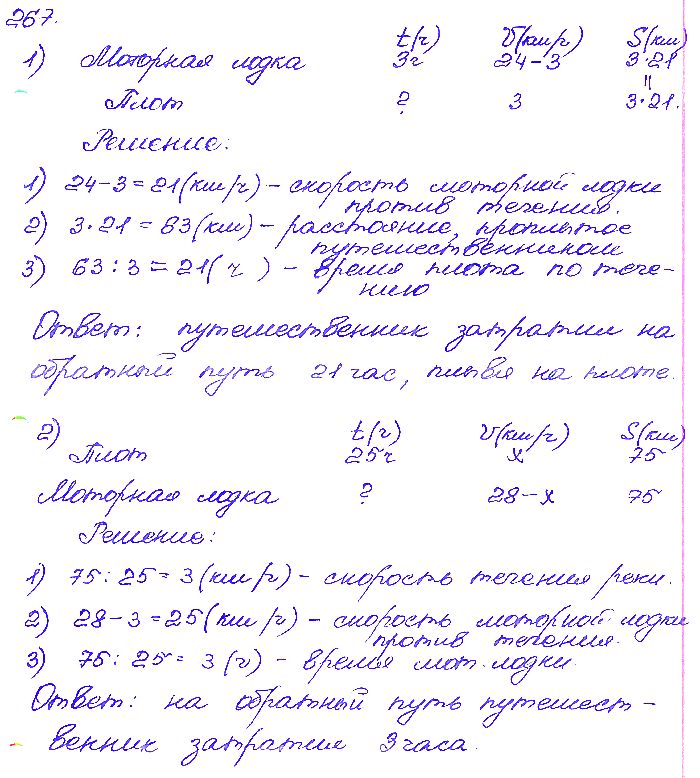 267.
t(ч) V(км/ч) S(км)
1) Моторная лодка 3ч 24-3 3·21
=
Плот ? 3 3·21.
Решение:
1) 24-3=21(км/ч) - скорость моторной лодки
против течения.
2) 3·21=63(км) - расстояние, проплытое
путешественником
3) 63:3=21(ч) - время плота по тече-
нию
Ответ: путешественник затратил на
обратный путь 21 час, плывя на плоте.
2) t(ч) V(км/ч) S(км)
Плот 25ч x 75
Моторная лодка ? 28-x 75
Решение:
1) 75:25=3(км/ч) - скорость течения реки.
2) 28-3=25(км/ч) - скорость моторной лодки
против течения.
3) 75:25=3(ч) - время мот. лодки.
Ответ: на обратный путь путешест-
венник затратил 3 часа.